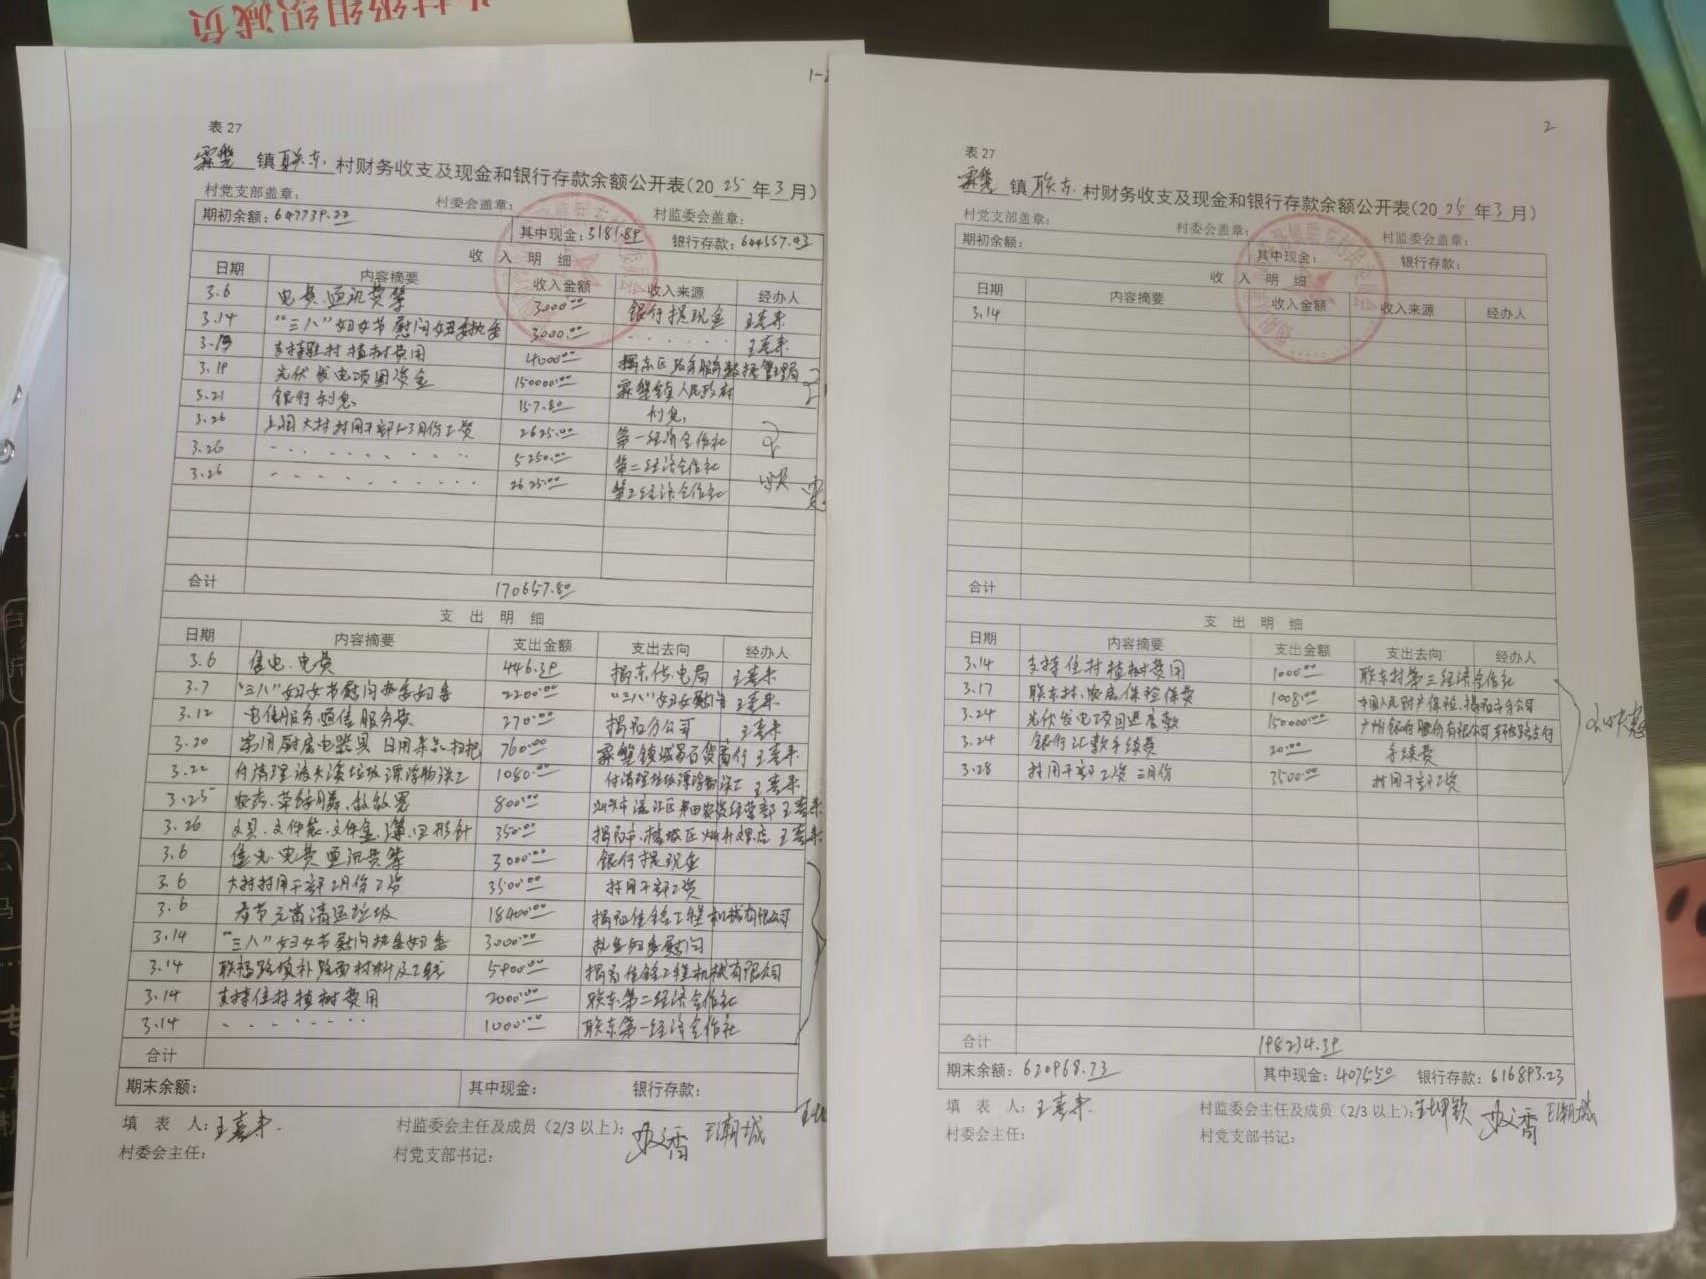 为村级组织减负
1-2
表 27
霖磐 镇 联东 村财务收支及现金和银行存款余额公开表(2025年3月)
村党支部盖章: 村委会盖章: 村监委会盖章:
期初余额: 647739.22 其中现金: 3181.89 银行存款: 644557.93
收入明细
日期 内容摘要 收入金额 收入来源 经办人
3.6 电费、通讯费等 3000.00 银行提现金 王喜来
3.14 “三八”妇女节慰问妇委执委 3000.00 王喜来
3.18 支持驻村植树费用 4000.00 揭东区政务服务数据管理局
3.19 光伏发电项目资金 150000.00 霖磐镇人民政府
3.21 银行利息 157.80 利息
3.26 大村村用干部1-3月份工资 2625.00 第一经济合作社
3.26 5250.00 第二经济合作社
3.26 2625.00 第三经济合作社
合计 170657.80
支出明细
日期 内容摘要 支出金额 支出去向 经办人
3.6 电费 446.39 揭东供电局 王喜来
3.7 “三八”妇女节慰问执委妇委 2200.00 “三八”妇女慰问 王喜来
3.12 电信服务、通信服务费 270.00 揭阳分公司 王喜来
3.20 家用厨房电器具 日用杂品 扫把 760.00 霖磐镇诚昌百货商行 王喜来
3.22 付清理 垃圾漂浮物 1080.00 付清理垃圾漂浮物 王喜来
3.25 农药 800.00 农资经营部 王喜来
3.26 文具、文件袋、文件盒、簿、回形针 350.00 揭阳市榕城区 王喜来
3.6 电费通讯费等 3000.00 银行提现金
3.6 大村村用干部2月份工资 3500.00 村用干部工资
3.6 春节元宵清运垃圾 18400.00 揭阳佳鑫工程机械有限公司
3.14 “三八”妇女节慰问执委妇委 3000.00 执委妇委慰问
3.14 联福路填补路面材料及工钱 5900.00 揭阳佳鑫工程机械有限公司
3.14 支持住村植树费用 2000.00 联东第二经济合作社
3.14 1000.00 联东第一经济合作社
合计
期末余额: 其中现金: 银行存款:
填 表 人: 王喜来 村监委会主任及成员(2/3 以上):
村委会主任: 村党支部书记:
2
表 27
霖磐 镇 联东 村财务收支及现金和银行存款余额公开表(2025年3月)
村党支部盖章: 村委会盖章: 村监委会盖章:
期初余额: 其中现金: 银行存款:
收入明细
日期 内容摘要 收入金额 收入来源 经办人
3.14
合计
支出明细
日期 内容摘要 支出金额 支出去向 经办人
3.14 支持住村植树费用 1000.00 联东村第三经济合作社
3.17 联东村农房保险保费 1008.00 中国人民财产保险揭阳市分公司
3.24 光伏发电项目进度款 150000.00 广州银行股份有限公司
3.24 银行汇款手续费 20.00 手续费
3.28 村用干部工资 三月份 3500.00 村用干部工资
合计 198234.39
期末余额: 620968.73 其中现金: 4075.50 银行存款: 616893.23
填 表 人: 王喜来 村监委会主任及成员(2/3 以上):
村委会主任: 村党支部书记: